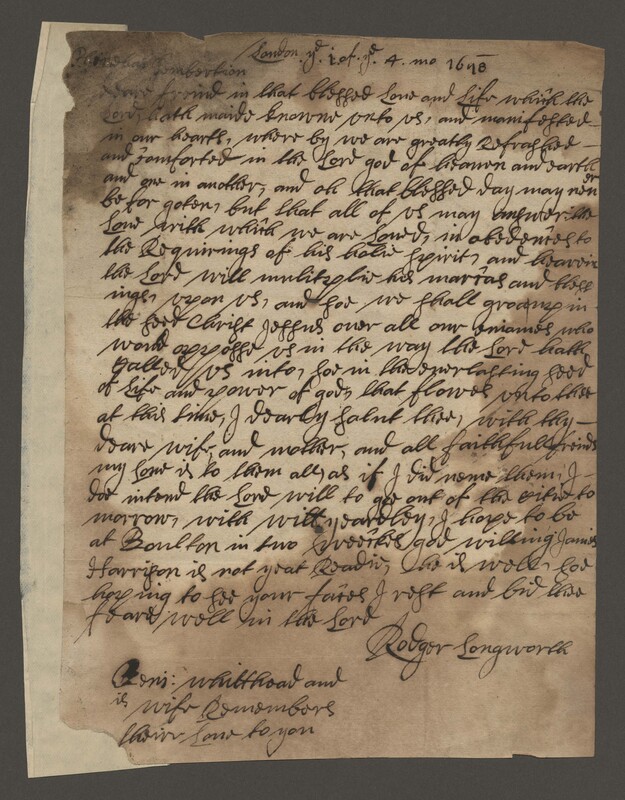 Phinehas Pemberton London yᵉ 1 of yᵉ 4 mo 1678
deare freind in that blessed Love and Life which the
Lord hath maide knowne vnto vs, and manifested
in our hearts, where by we are greatly Refrashed
and comforted in the Lord god of heaven and earth
and one in another, and oh that blessed day may never
be for goten, but that all of vs may answer the
Love with which we are Loved, in obedences to
the Requirings of his holie spirit, and hearein
the Lord will multiplie his marcas and bless
ings, vpon vs, and soe we shall grow vp in
the seed Christ Jessus over all our eniames who
would opposse vs in the way the Lord hath
Called vs into, soe in the everlasting seed
of Life and power of god, that flowes vnto thee
at this time, I dearly salut thee, with thy
deare wife, and mother, and all faithfull freinds
my Love is to them all, as if I did neme them, I
doe intend the Lord will to goe out of the Citie to
morrow, with will yeardley, I hope to be
at Boulton in two weeckes god willing James
Harrison is not yeat Readie, he is well, soe
hoping to see your faces I rest and bid thee
feare well in the Lord
Rodger Longworth
Beni: whitthead and
is wife Remembers
theire Love to you